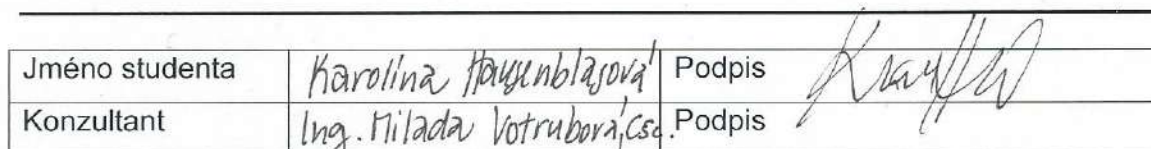 Jméno studenta Karolína Hausenblasová Podpis
Konzultant Ing. Milada Votrubová, CSc. Podpis